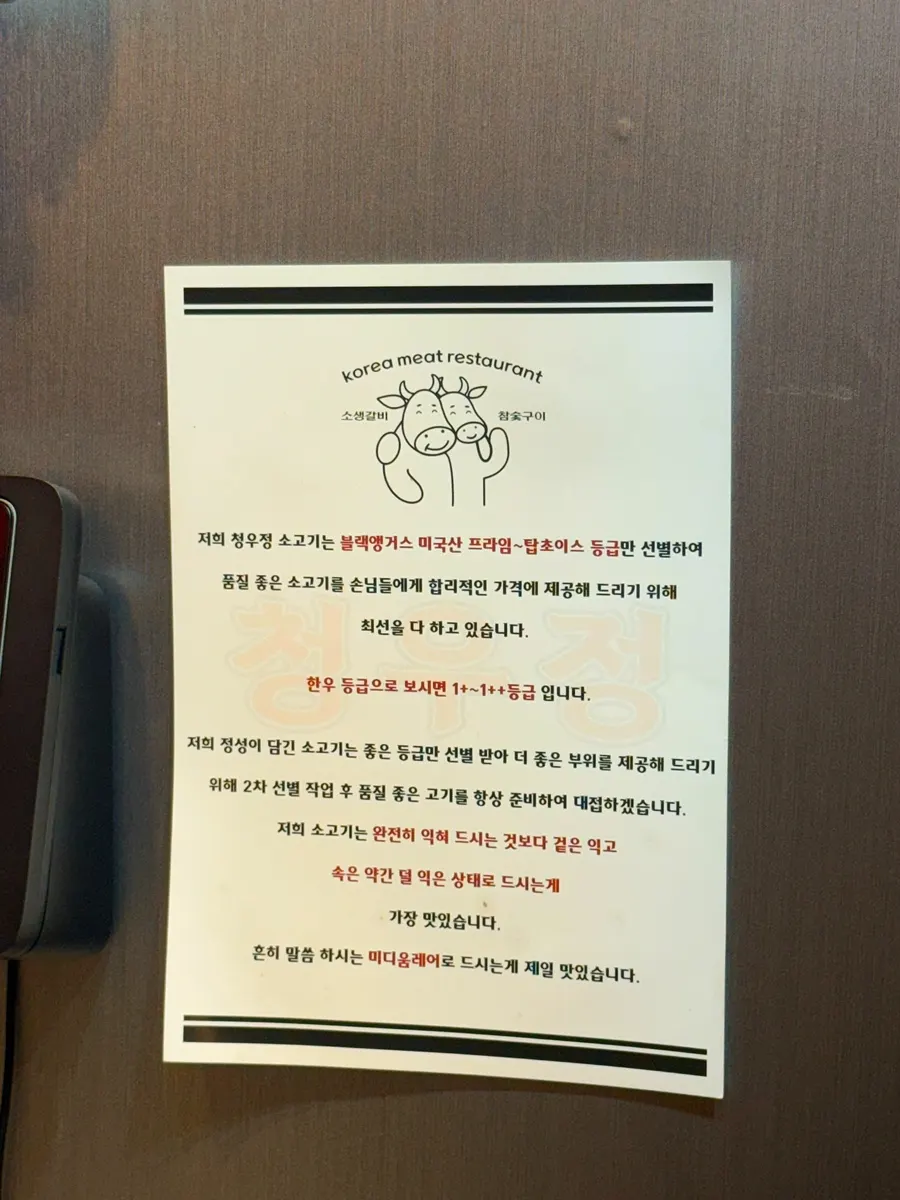 korea meat restaurant
소생갈비
참숯구이
저희 청우정 소고기는 블랙앵거스 미국산 프라임~탑초이스 등급만 선별하여
품질 좋은 소고기를 손님들에게 합리적인 가격에 제공해 드리기 위해
최선을 다 하고 있습니다.
청우정
한우 등급으로 보시면 1+~1++등급 입니다.
저희 정성이 담긴 소고기는 좋은 등급만 선별 받아 더 좋은 부위를 제공해 드리기
위해 2차 선별 작업 후 품질 좋은 고기를 항상 준비하여 대접하겠습니다.
저희 소고기는 완전히 익혀 드시는 것보다 겉은 익고
속은 약간 덜 익은 상태로 드시는게
가장 맛있습니다.
흔히 말씀 하시는 미디움레어로 드시는게 제일 맛있습니다.